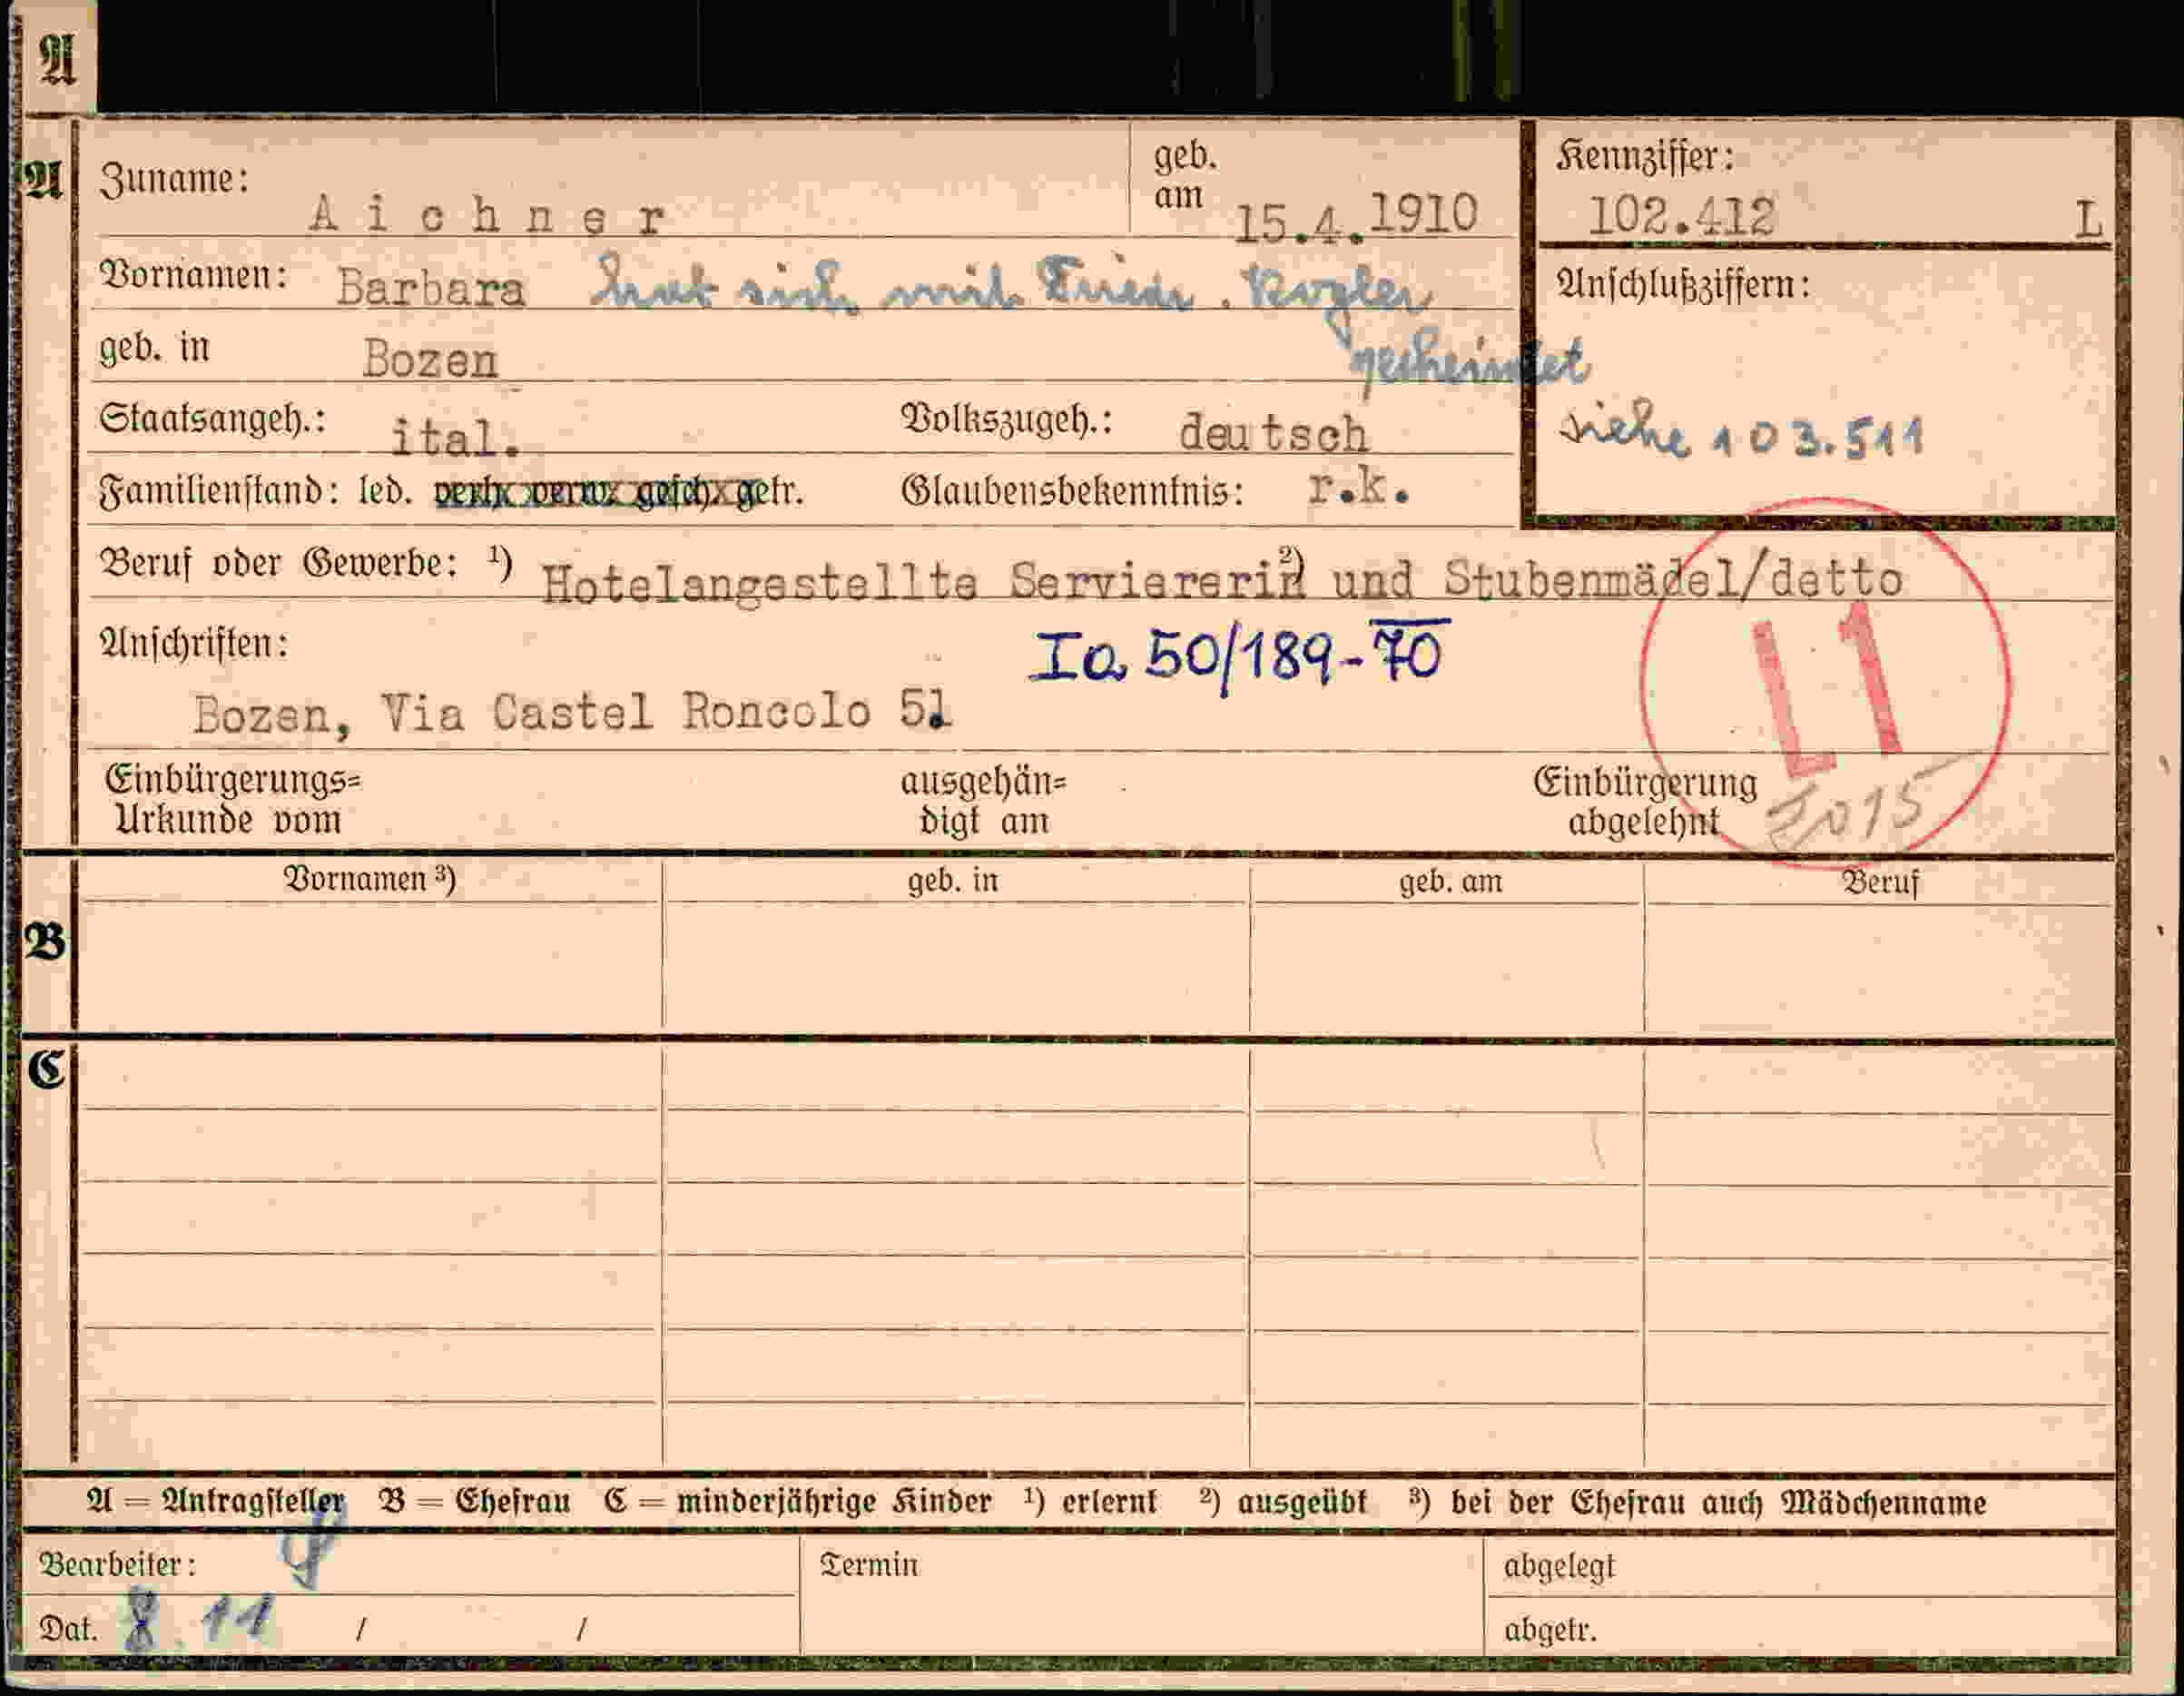 A
A
Zuname: Aichner geb. am 15.4.1910
Kennziffer: 102.412 L
Vornamen: Barbara hat sich mit Friedr. Kogler
geheiratet
Anschlußziffern:
siehe 103.511
geb. in Bozen
Staatsangeh.: ital. Volkszugeh.: deutsch
Familienstand: led. verh. verw. gesch. getr. Glaubensbekenntnis: r.k.
Beruf oder Gewerbe: ¹) Hotelangestellte Serviererin ²) und Stubenmädel/detto
Anschriften:
Ia 50/189-70
Bozen, Via Castel Roncolo 51
L1
Einbürgerungs=
Urkunde vom
ausgehän=
digt am
Einbürgerung
abgelehnt
Vornamen ³) geb. in geb. am Beruf
B
C
A = Antragsteller B = Ehefrau C = minderjährige Kinder ¹) erlernt ²) ausgeübt ³) bei der Ehefrau auch Mädchenname
Bearbeiter: Termin abgelegt
Dat. 8.11 / / abgetr.